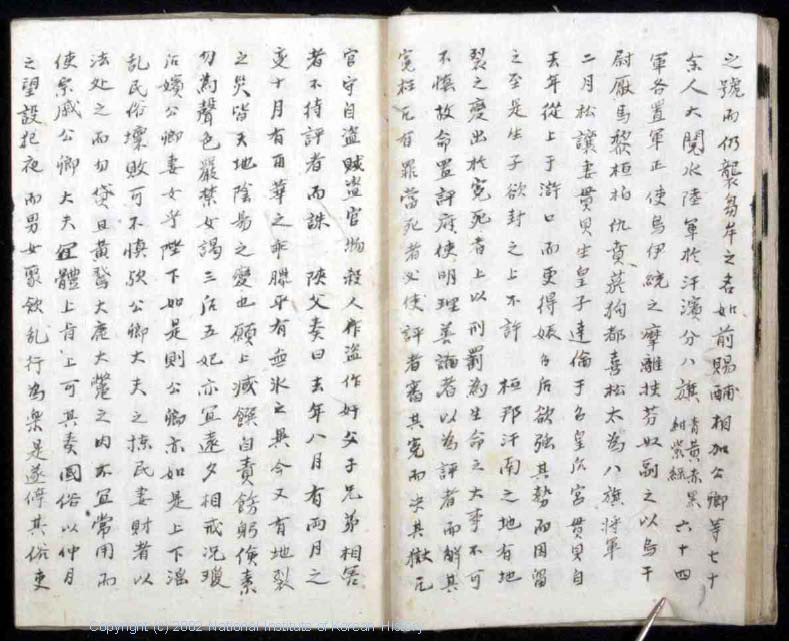 之號而仍襲芻牟之名如前賜酺相加公卿等七十
余人大閱水陸軍於汗濱分八旗青黃赤黑紺紫綠六十四
軍各置軍正使烏伊統之摩離扶芬奴副之以烏干
尉厭馬黎桓柏仇賁 狗都喜松太為八旗將軍
二月松讓妻貫貝生皇子達倫于 皇后宮貫貝自
去年從上于滸口而更得娠 后欲强其勢而因留
之至是生子欲封之上不許 桓那汗南之地有地
裂之變出於寃死者上以刑罰為生命之大事不可
不愼故命置評府使明理善論者以為評者而解其
寃枉凡有罪當死者必使評者審其寃而决其獄凡
官守自盜賊盜官物殺人作盜作奸父子兄弟相害
者不待評者而誅 陜父奏曰去年八月有兩月之
變十月有百華之 今又有地裂
之災皆天地陰昜之變也願上减饌自責飭躬儉素
勿為聲色嚴禁女謁三后五妃亦宜遠夕相戒况瓊
后嬪公卿妻女乎陛下如是則公卿亦如是上下淫
乱民俗壞敗可不愼欤公卿大夫之掠民妻財者以
法处之而勿貸且黃 大鹿大鱉之肉不宜常用而
使宗戚公卿大夫宜體上旨上可其奏國俗以仲月
之望設犯夜而男女聚飮乱行為樂是遂傳其俗更
Copyright (c) 2002 National Institute of Korean History